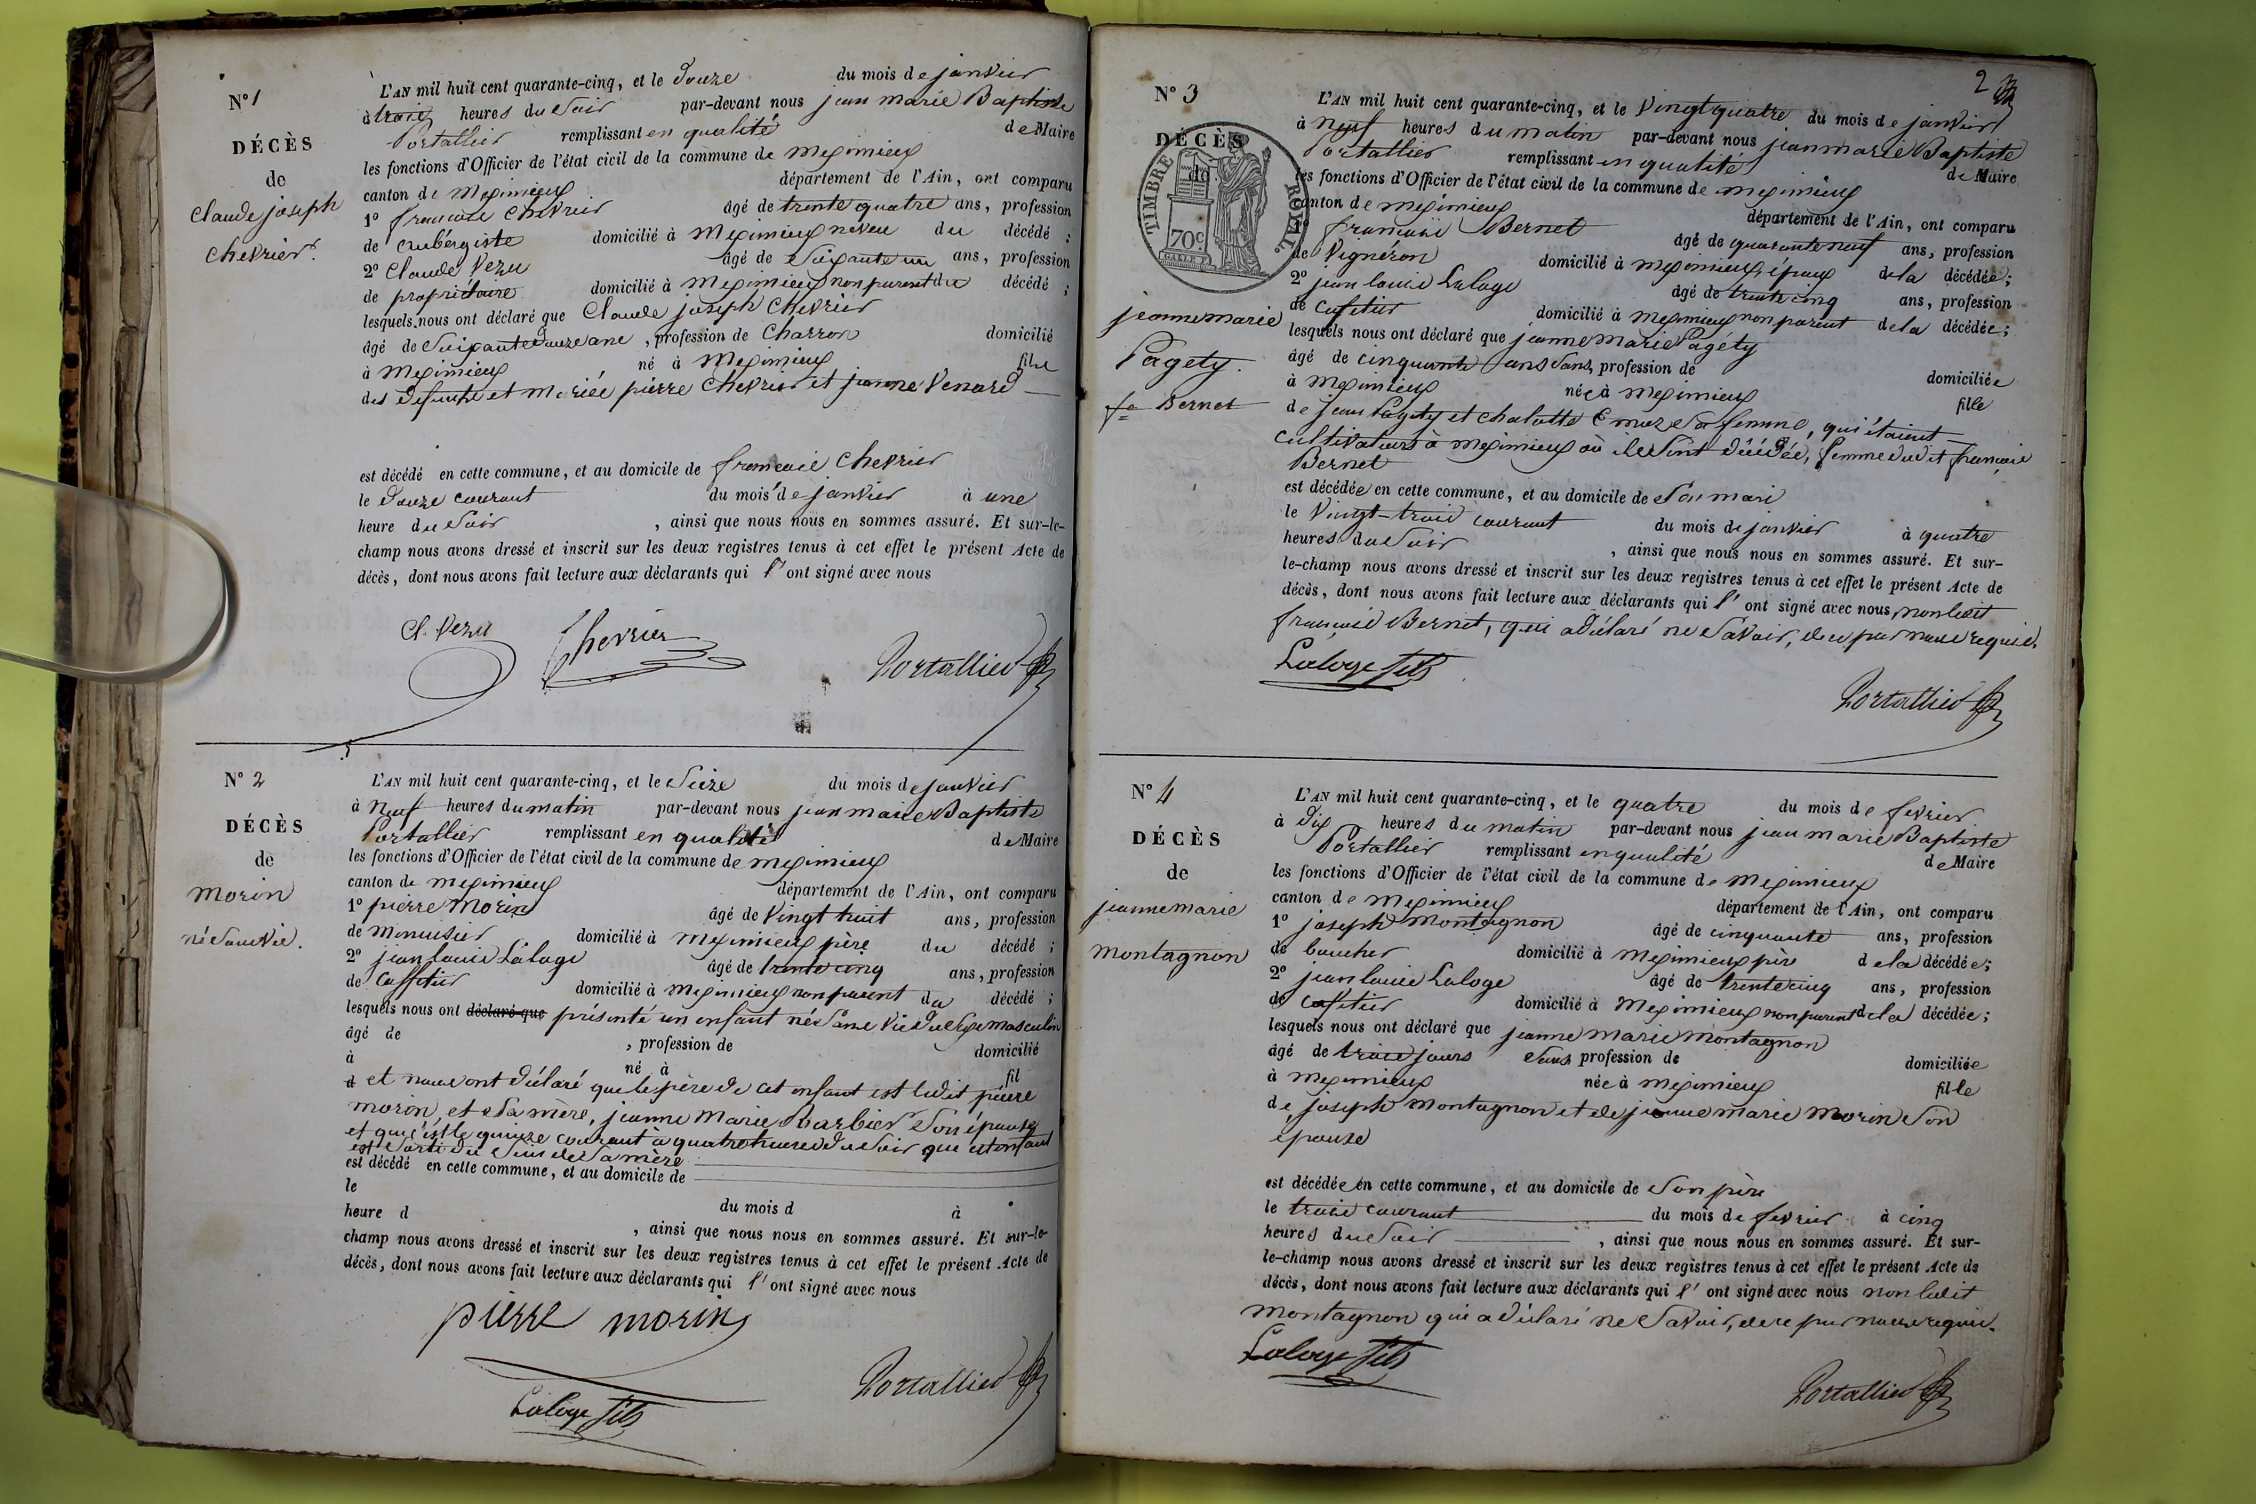 N° 1
DÉCÈS
de
Claude joseph
Chevrier.
L'AN mil huit cent quarante-cinq, et le Douze du mois de janvier
à trois heures du Soir par-devant nous jean marie Baptiste
Portallier remplissant en qualité de Maire
les fonctions d'Officier de l'état civil de la commune de meximieux
canton de meximieux département de l'Ain, ont comparu
1° françois Chevrier âgé de trente quatre ans, profession
de aubergiste domicilié à meximieux neveu du décédé ;
2° Claude Vezu âgé de Soixante un ans, profession
de propriétaire domicilié à meximieux non parent du décédé ;
lesquels nous ont déclaré que Claude joseph Chevrier
âgé de Soixante Douze ans, profession de Charron domicilié
à meximieux né à meximieux fils
des défunts et mariés pierre Chevrier et jeanne Venard
est décédé en cette commune, et au domicile de françois Chevrier
le Douze courant du mois de janvier à une
heure du Soir, ainsi que nous nous en sommes assuré. Et sur-le-
champ nous avons dressé et inscrit sur les deux registres tenus à cet effet le présent Acte de
décès, dont nous avons fait lecture aux déclarants qui l'ont signé avec nous
Cl. Vezu Chevrier Portallier
N° 2
DÉCÈS
de
morin
né Sans Vie.
L'AN mil huit cent quarante-cinq, et le Seize du mois de janvier
à Neuf heures du matin par-devant nous jean marie Baptiste
Portallier remplissant en qualité de Maire
les fonctions d'Officier de l'état civil de la commune de meximieux
canton de meximieux département de l'Ain, ont comparu
1° pierre Morin âgé de Vingt huit ans, profession
de menuisier domicilié à meximieux père du décédé ;
2° jean louis Laloge âgé de trente cinq ans, profession
de Caffetier domicilié à meximieux non parent du décédé ;
lesquels nous ont déclaré que présenté un enfant né Sans Vie du Sexe masculin
âgé de , profession de domicilié
à né à fil
d et nous ont déclaré que le père de cet enfant est ledit pierre
morin, et Sa mère, jeanne Marie Barbier Son épouse
et que c'est le quinze courant à quatre heures du Soir que cet enfant
est Sorti du Sein de Sa mère
est décédé en cette commune, et au domicile de
le du mois d à
heure d , ainsi que nous nous en sommes assuré. Et sur-le-
champ nous avons dressé et inscrit sur les deux registres tenus à cet effet le présent Acte de
décès, dont nous avons fait lecture aux déclarants qui l'ont signé avec nous
pierre morin
Laloge fils Portallier
2
N° 3
DÉCÈS
de
TIMBRE ROYAL
70 c.
jeanne marie
Pagety.
fe Bernet
L'AN mil huit cent quarante-cinq, et le Vingt quatre du mois de janvier
à Neuf heures du matin par-devant nous jean marie Baptiste
Portallier remplissant en qualité de Maire
les fonctions d'Officier de l'état civil de la commune de meximieux
canton de meximieux département de l'Ain, ont comparu
françois Bernet âgé de quarante neuf ans, profession
de Vigneron domicilié à meximieux, époux de la décédée ;
2° jean louis Laloge âgé de trente cinq ans, profession
de Cafetier domicilié à meximieux non parent de la décédée ;
lesquels nous ont déclaré que jeanne Marie Pagety
âgé de cinquante ans Sans profession de domiciliée
à meximieux née à meximieux fille
de jean Pagety et Sa femme, qui étaient
cultivateurs à meximieux où ils Sont décédés, femme dudit françois
Bernet
est décédée en cette commune, et au domicile de Son mari
le Vingt-trois courant du mois de janvier à quatre
heures du Soir, ainsi que nous nous en sommes assuré. Et sur-
le-champ nous avons dressé et inscrit sur les deux registres tenus à cet effet le présent Acte de
décès, dont nous avons fait lecture aux déclarants qui l'ont signé avec nous, non ledit
françois Bernet, qui a déclaré ne Savoir, de ce par nous requis.
Laloge fils
Portallier
N° 4
DÉCÈS
de
jeanne marie
montagnon
L'AN mil huit cent quarante-cinq, et le quatre du mois de fevrier
à Dix heures du matin par-devant nous jean marie Baptiste
Portallier remplissant en qualité de Maire
les fonctions d'Officier de l'état civil de la commune de meximieux
canton de meximieux département de l'Ain, ont comparu
1° joseph Montagnon âgé de cinquante ans, profession
de boucher domicilié à meximieux père de la décédée ;
2° jean louis Laloge âgé de trente cinq ans, profession
de cafetier domicilié à meximieux non parent de la décédée ;
lesquels nous ont déclaré que jeanne marie montagnon
âgé de trois jours Sans profession de domiciliée
à meximieux née à meximieux fille
de joseph Montagnon et de jeanne marie Morin Son
épouse
est décédée en cette commune, et au domicile de Son père
le trois courant du mois de fevrier à cinq
heures du Soir, ainsi que nous nous en sommes assuré. Et sur-
le-champ nous avons dressé et inscrit sur les deux registres tenus à cet effet le présent Acte de
décès, dont nous avons fait lecture aux déclarants qui l'ont signé avec nous non ledit
montagnon qui a déclaré ne Savoir, de ce par nous requis.
Laloge fils
Portallier